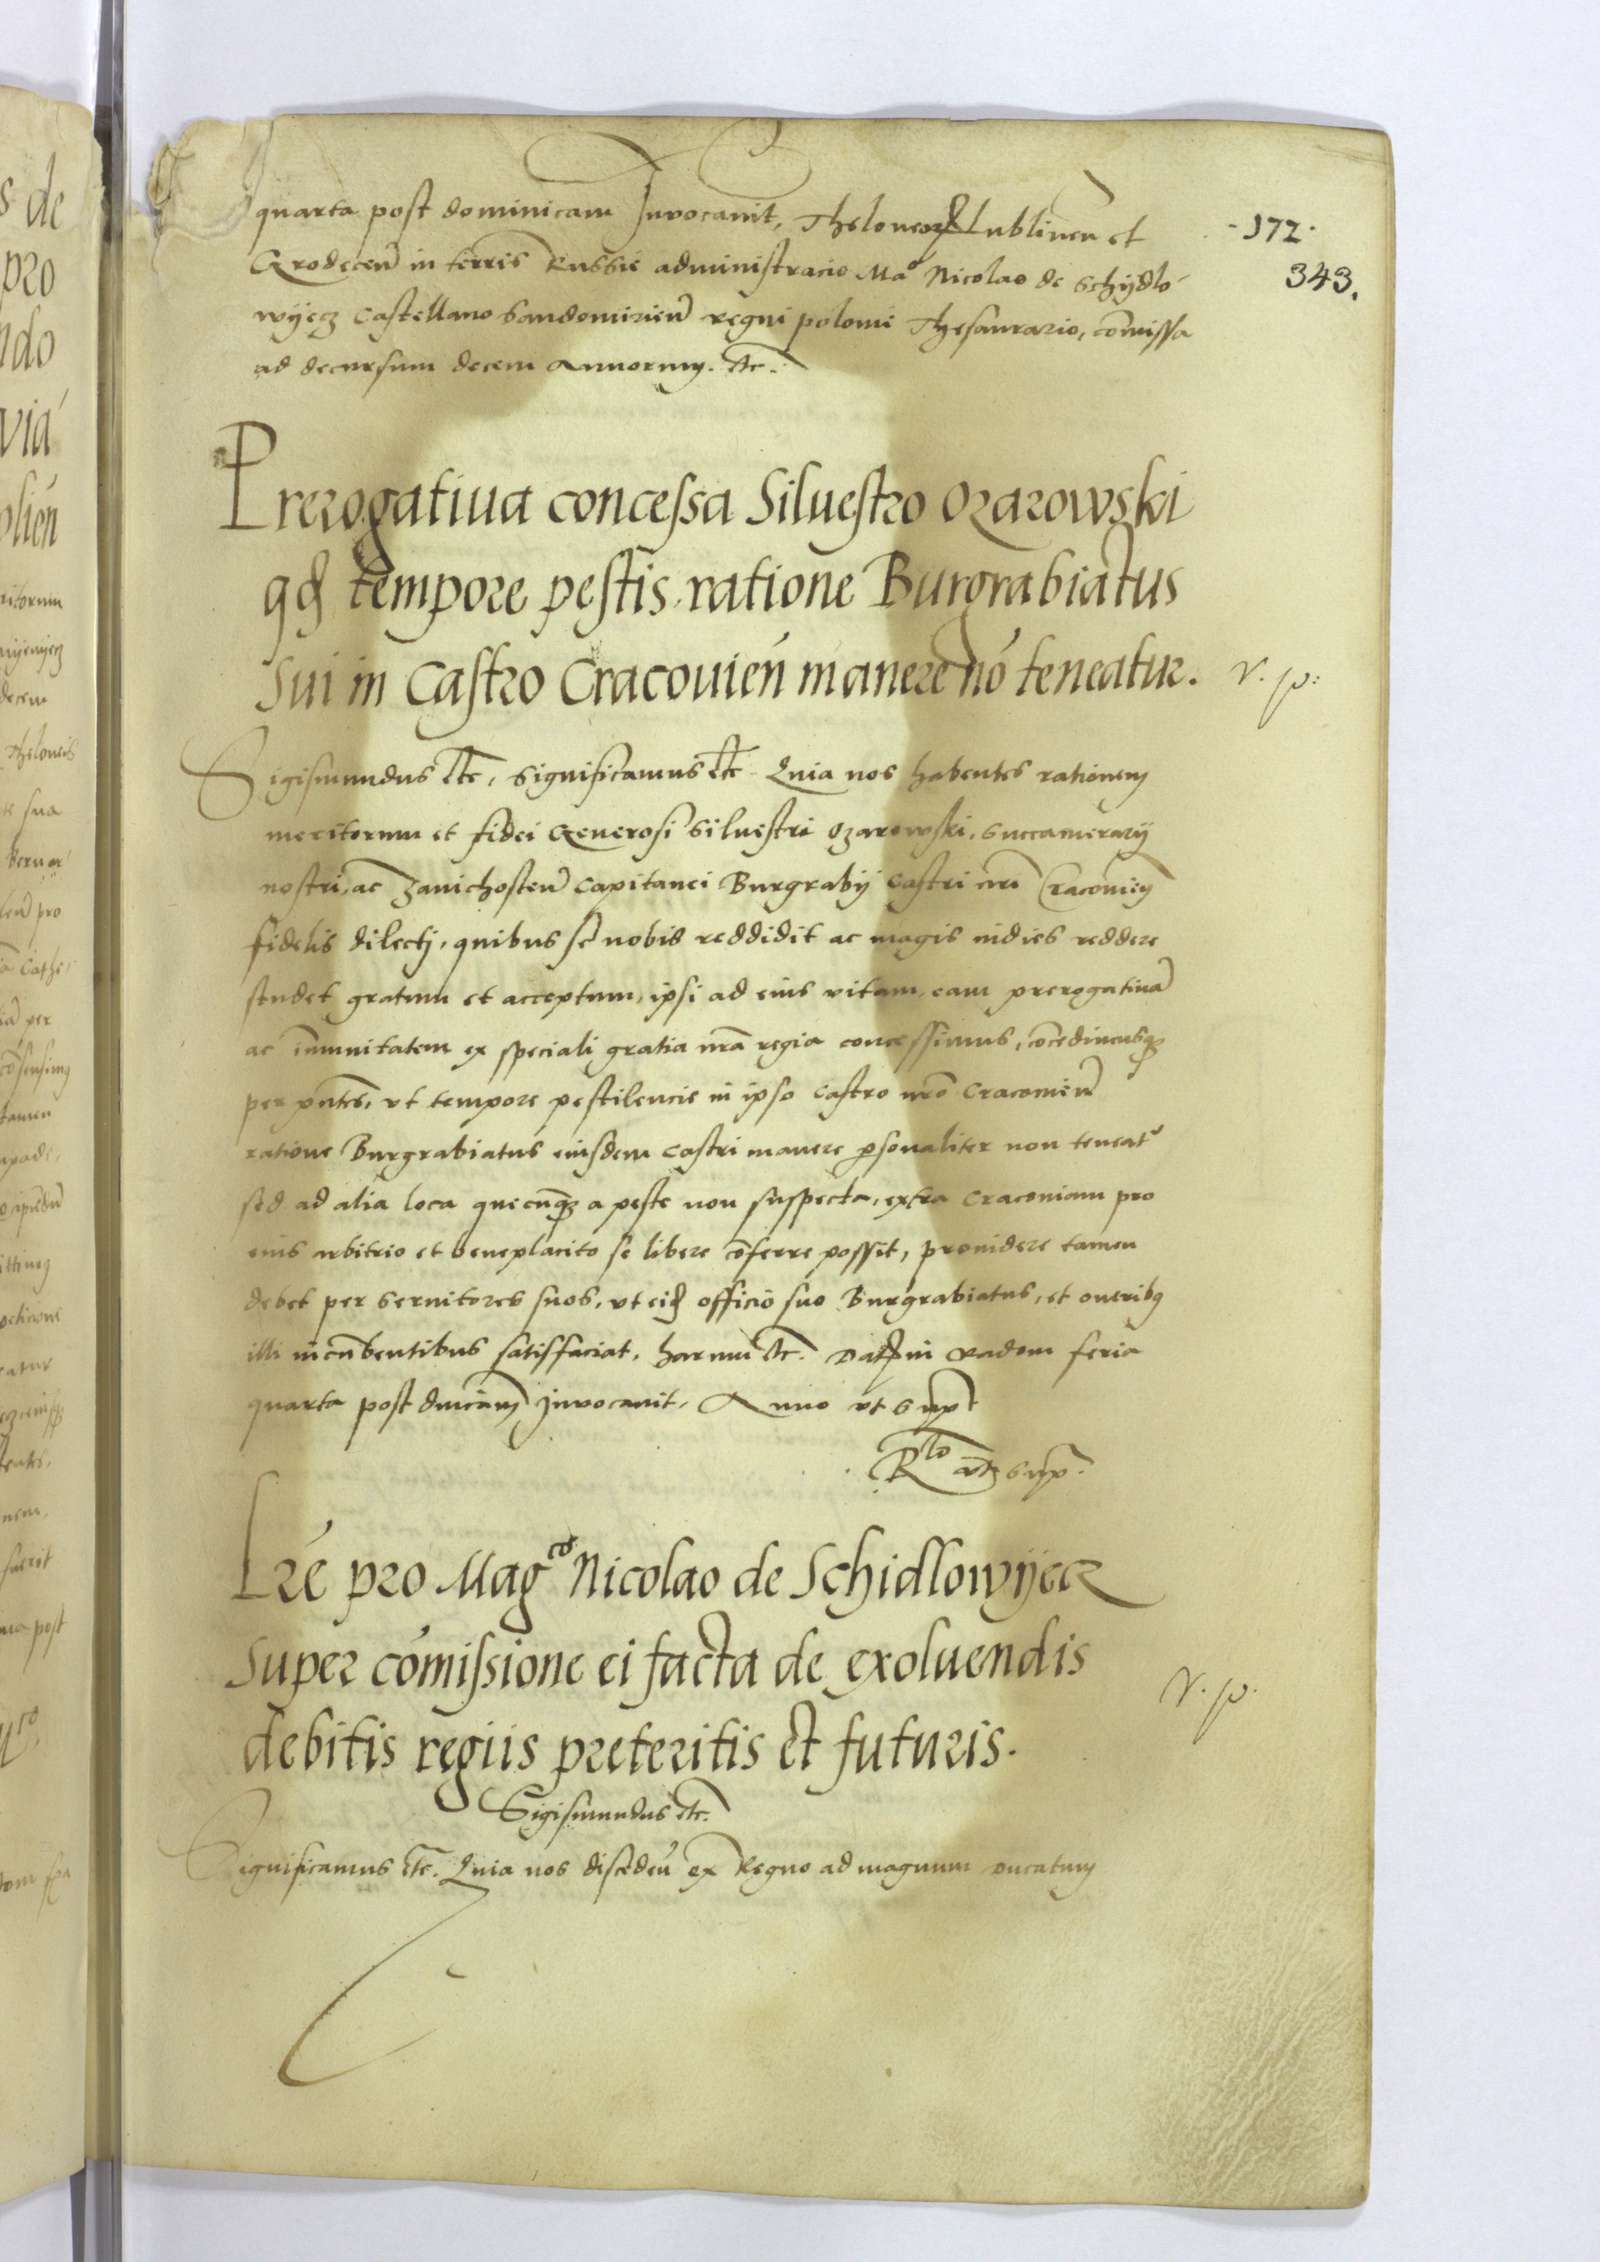 quarta post dominicam Invocavit, Theloneorum Lublinen et
Grodecen in terris Russie administracio Mco Nicolao de Schydlo
wyecz Castellano Sandomirien regni polonie Thesaurario, comissa
ad decursum decem Annorum. etc.
-172-
343.
Prerogativa concessa Siluestro Ozarowski
qd tempore pestis, ratione Burgrabiatus
sui in Castro Cracouien manere no teneatur.
v. p:
Sigismundus etc, Significamus etc Quia nos habentes rationem
meritorum et fidei Generosi Siluestri Ozarowski, Succamerarij
nostri, ac Zavichosten Capitanei Burgrabij Castri nri Cracouien
fidelis dilecti, quibus se nobis reddidit ac magis indies reddere
studet gratum et acceptum, ipsi ad eius vitam, eam prerogativa
ac immnitatem ex speciali gratia nra regia concessimus, cocedimusq
per pntes, vt tempore pestilencie in ipso Castro nro Cracouien
ratione Burgrabiatus eiusdem Castri manere psonaliter non teneat
sed ad alia loca quecuq a peste non suspecta, extra Cracouiam pro
eius arbitrio et beneplacito se libere coferre possit, prouidere tamen
debet per seruitores suos, vt eid officio suo Burgrabiatus, et oneribq
illi incubentibus satisfaciat, harum etc. Dat in Radom feria
quarta post dnicam Invocavit, Anno vt Sup
Rlo vt sup.
Lre pro Magco Nicolao de Schidlowyecz
super comissione ei facta de exoluendis
debitis regiis preteritis et futuris.
v. p.
Sigismundus etc.
Significamus etc. Quia nos disceden ex Regno ad magnum Ducatum